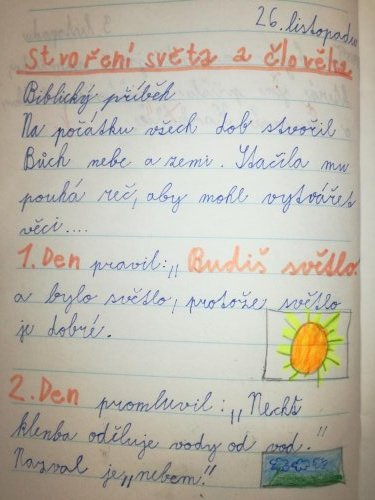 26. listopadu
Stvoření světa a člověka
Biblický příběh
Na počátku všech dob stvořil
Bůch nebe a zemi. Stačila mu
pouhá reč, aby mohl vytvářet
věci....
1. Den pravil:,, Budiš světlo.
a bylo světlo, protože světlo
je dobré.
2. Den promluvil:,, Nechť
klenba oděluje vody od vod."
Nazval je,,nebem!"